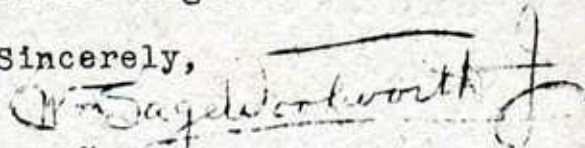 Sincerely,
Wm Sage Woolworth